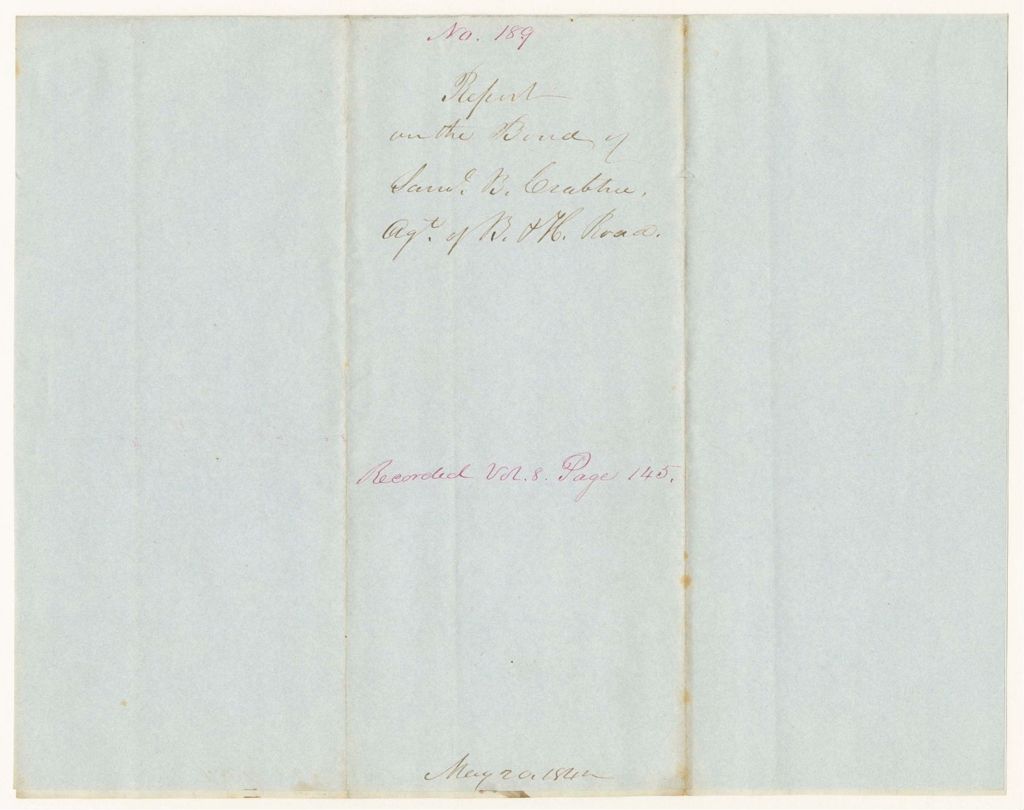 No. 189
Report
on the Bond of
Saml. B. Crabtre,
Agt. of B. & H. Road.
Recorded Vol. 8. Page 145.
May 20. 1844